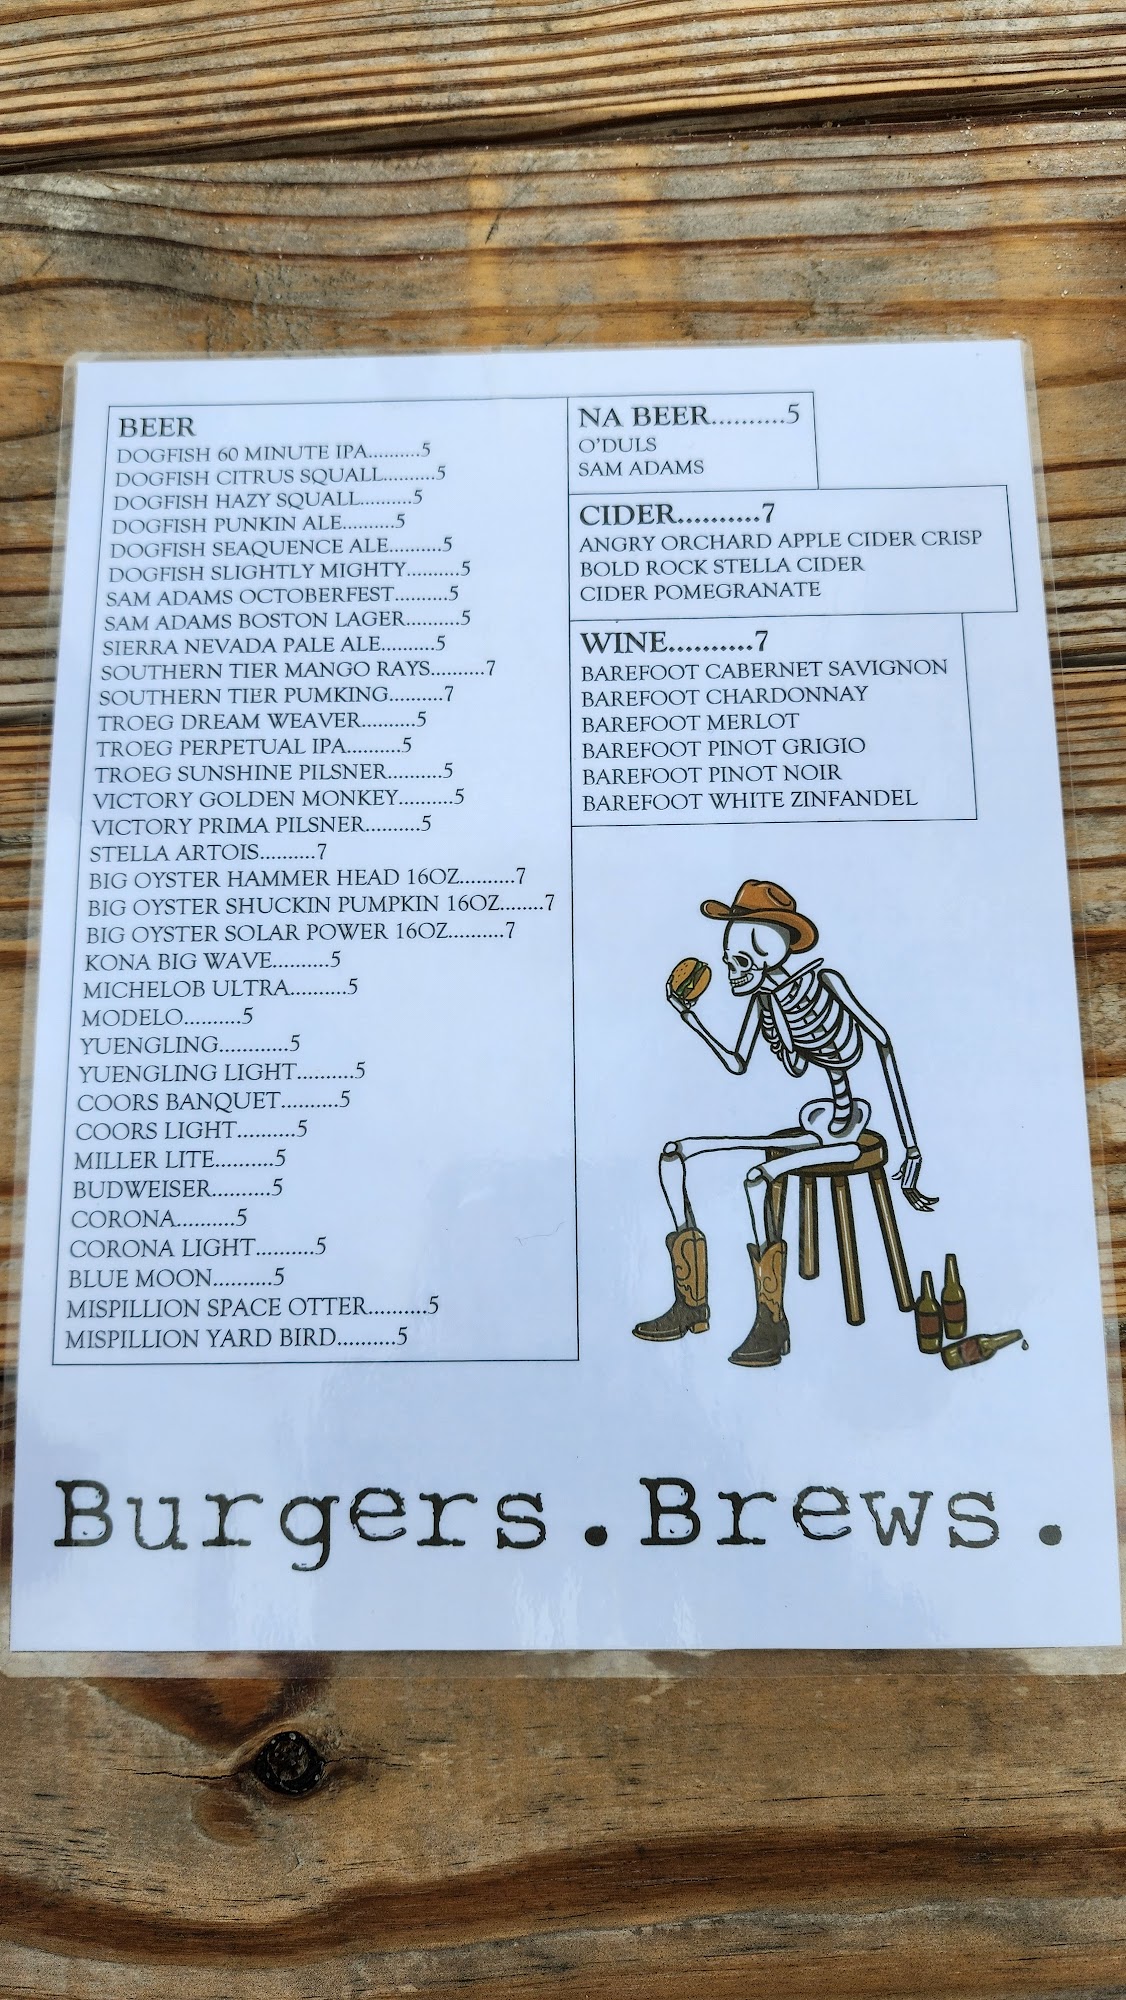 BEER
DOGFISH 60 MINUTE IPA..........5
DOGFISH CITRUS SQUALL..........5
DOGFISH HAZY SQUALL..........5
DOGFISH PUNKIN ALE..........5
DOGFISH SEAQUENCE ALE..........5
DOGFISH SLIGHTLY MIGHTY..........5
SAM ADAMS OCTOBERFEST..........5
SAM ADAMS BOSTON LAGER..........5
SIERRA NEVADA PALE ALE..........5
SOUTHERN TIER MANGO RAYS..........7
SOUTHERN TIER PUMKING..........7
TROEG DREAM WEAVER..........5
TROEG PERPETUAL IPA..........5
TROEG SUNSHINE PILSNER..........5
VICTORY GOLDEN MONKEY..........5
VICTORY PRIMA PILSNER..........5
STELLA ARTOIS..........7
BIG OYSTER HAMMER HEAD 16OZ..........7
BIG OYSTER SHUCKIN PUMPKIN 16OZ........7
BIG OYSTER SOLAR POWER 16OZ..........7
KONA BIG WAVE..........5
MICHELOB ULTRA..........5
MODELO..........5
YUENGLING............5
YUENGLING LIGHT..........5
COORS BANQUET..........5
COORS LIGHT..........5
MILLER LITE..........5
BUDWEISER..........5
CORONA..........5
CORONA LIGHT..........5
BLUE MOON..........5
MISPILLION SPACE OTTER..........5
MISPILLION YARD BIRD..........5
NA BEER..........5
O'DULS
SAM ADAMS
CIDER..........7
ANGRY ORCHARD APPLE CIDER CRISP
BOLD ROCK STELLA CIDER
CIDER POMEGRANATE
WINE..........7
BAREFOOT CABERNET SAVIGNON
BAREFOOT CHARDONNAY
BAREFOOT MERLOT
BAREFOOT PINOT GRIGIO
BAREFOOT PINOT NOIR
BAREFOOT WHITE ZINFANDEL
Burgers.Brews.